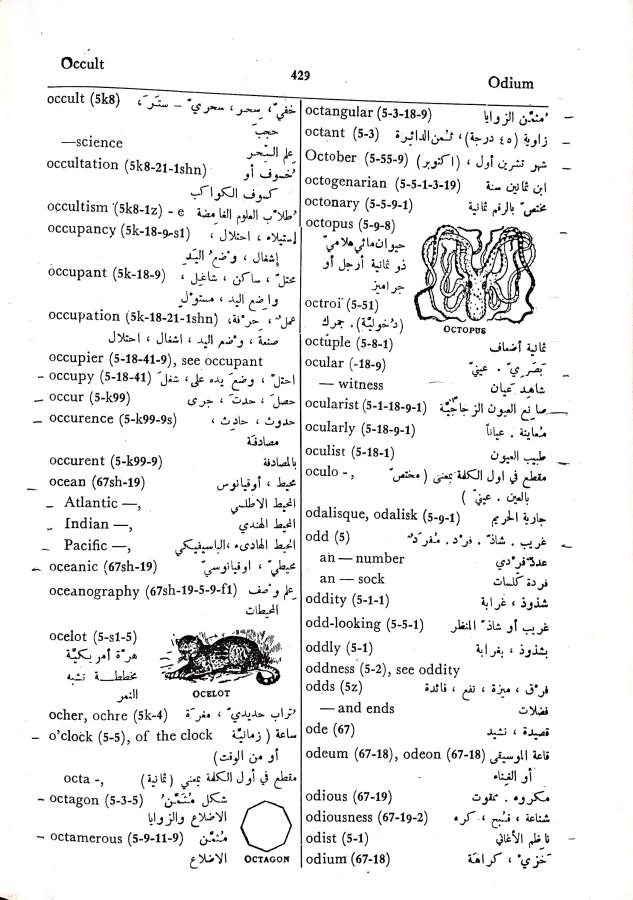 Occult
429
Odium
occult (5k8) خفيّ، سحر، سحريّ – ستَرَ،
حجبَ
—science علم السّحر
occultation (5k8-21-1shn) خُسوف أو
كسوف الكواكب
occultism (5k8-1z) - e طلاّب العلوم الغامِضة
occupancy (5k-18-9-s1) إستيلاء، احتلال،
إشغال، وضع اليَد
occupant (5k-18-9) محتلّ، ساكن، شاغِل،
واضِع اليد، مسئول
occupation (5k-18-21-1shn) عمل، حِرفة،
صنعة، وضع اليد، اشغال، احتلال
occupier (5-18-41-9), see occupant
– occupy (5-18-41) احتلّ، وضعَ يده على، شغلَ
– occur (5-k99) حصلَ، حدثَ، جرى
– occurence (5-k99-9s) حدوث، حادِث،
مصادفة
occurent (5-k99-9) بالمصادفة
ocean (67sh-19) محيط، أوقيانوس
– Atlantic —, المحيط الاطلسي
– Indian —, المحيط الهندي
– Pacific —, المحيط الهادىء، الباسيفيكي
– oceanic (67sh-19) محيطيّ، اوقيانوسيّ
oceanography (67sh-19-5-9-f1) عِلم وصف
المحيطات
ocelot (5-s1-5)
هرّة أمريكيّة
مخططة تشبه
النمر
OCELOT
ocher, ochre (5k-4) تراب حديديّ، مغرَة
– o'clock (5-5), of the clock ساعة (زمانيّة
أو من الوقت)
octa -, مقطع في أول الكلمة بمعنى (ثمانية)
– octagon (5-3-5) شكل مُثمَّن
الاضلاع والزوايا
– octamerous (5-9-11-9) مُثمّن
الاضلاع
OCTAGON
octangular (5-3-18-9) مُثمّن الزوايا –
octant (5-3) زاوية (٤٥ درجة)، ثمن الدائرة –
October (5-55-9) شهر تشرين أول، (اكتوبر) –
octogenarian (5-5-1-3-19) ابن ثمانين سنة
octonary (5-5-9-1) مختصّ بالرقم ثمانية
octopus (5-9-8)
حيوان مائي هلاميّ
ذو ثمانية أرجل أو
جراميز
OCTOPUS
octroï (5-51)
(دخوليّة). جمرك
octuple (5-8-1) ثمانية أضعاف
ocular (-18-9) بَصَريّ. عينيّ –
— witness شاهد عيان
ocularist (5-1-18-9-1) صانع العيون الزجاجيّة –
ocularly (5-18-9-1) مُعاينة. عياناً
oculist (5-18-1) طبيب العيون –
oculo -, مقطع في اول الكلمة بمعنى (مختصّ
بالعين. عينيّ)
odalisque, odalisk (5-9-1) جارية الحريم
odd (5) غريب. شاذّ. فرد. مُفرَد –
an — number عدد فردي
an — sock فردة كلسات
oddity (5-1-1) شذوذ، غرابة
odd-looking (5-5-1) غريب أو شاذّ المنظر
oddly (5-1) بشذوذ، بغرابة
oddness (5-2), see oddity
odds (5z) فرق، ميزة، نفع، فائدة
— and ends فضلات
ode (67) قصيدة، نشيد
odeum (67-18), odeon (67-18) قاعة الموسيقى
أو الغِناء
odious (67-19) مكروه. ممقوت
odiousness (67-19-2) شناعة، قُبح، كره
odist (5-1) ناظم الأغاني –
odium (67-18) خزيّ، كراهة